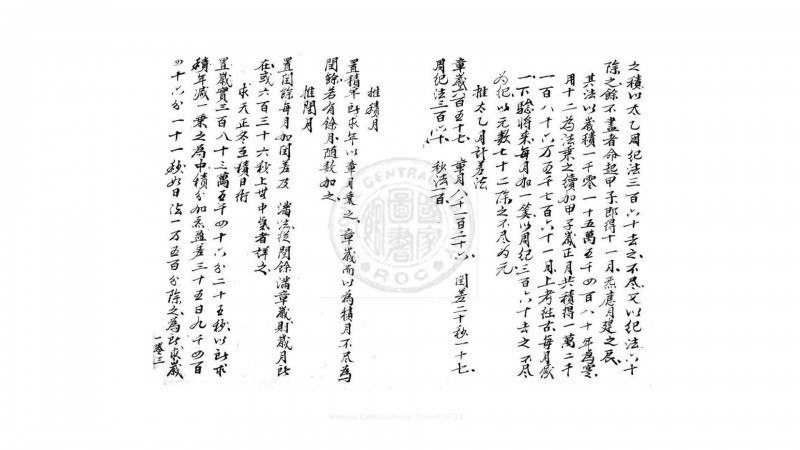 之積以太乙周紀法三百六十去之不尽又以紀法六十
除之余不盡者命起甲子即得十一月炁應月建之辰
其法以歲積一千零一十五萬五千四百八十年為率
用十二為法乗之續加甲子歲正月共積得一萬二千
一百八十六万五千七百六十一月上考往古每月減
一下騐將来每月加一筭以周紀三百六十去之不尽
為紀以元数七十二除之不尽為元
推太乙月計差法
章歲六百五十七 章月八千一百二十六 閏差二十秒一十七
周紀法三百六十 秒法一百
推積月
置積年所求年以章月乗之章歲而以為積月不尽為
閏餘若有餘月随数加之
推閏月
置閏餘每月加閏差及 滿法從閏餘滿章歲則歲月所
在或六百三十六秒上其中氣者詳之
求天正冬至積日術
置歲實三百八十三萬五千四十六分二十五秒以所求
積年減一乗之為中積分加炁盈差三十五日九千四百
四十六分一十一秒如日法一万五百分除之為所求歲
一卷三
CENTRAL
國家圖書館
ROC